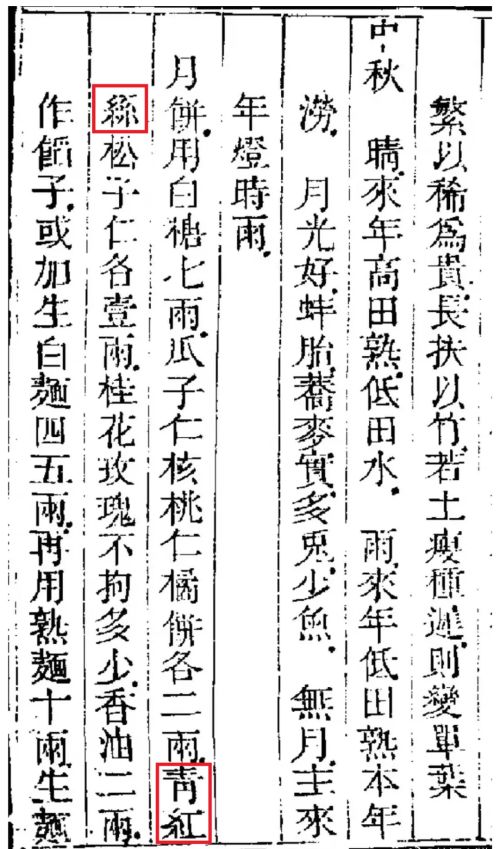 繁以稀爲貴長扶以竹若土瘦種遲則變單葉
中秋 晴來年高田熟低田水 雨來年低田熟本年
澇 月光好蚌胎蕎麥實多兎少魚 無月主來
年燈時雨
月餅用白糖七兩瓜子仁核桃仁橘餅各二兩青紅
絲松子仁各壹兩桂花玫瑰不拘多少香油二兩
作餡子或加生白麵四五兩再用熟麵十兩生麵